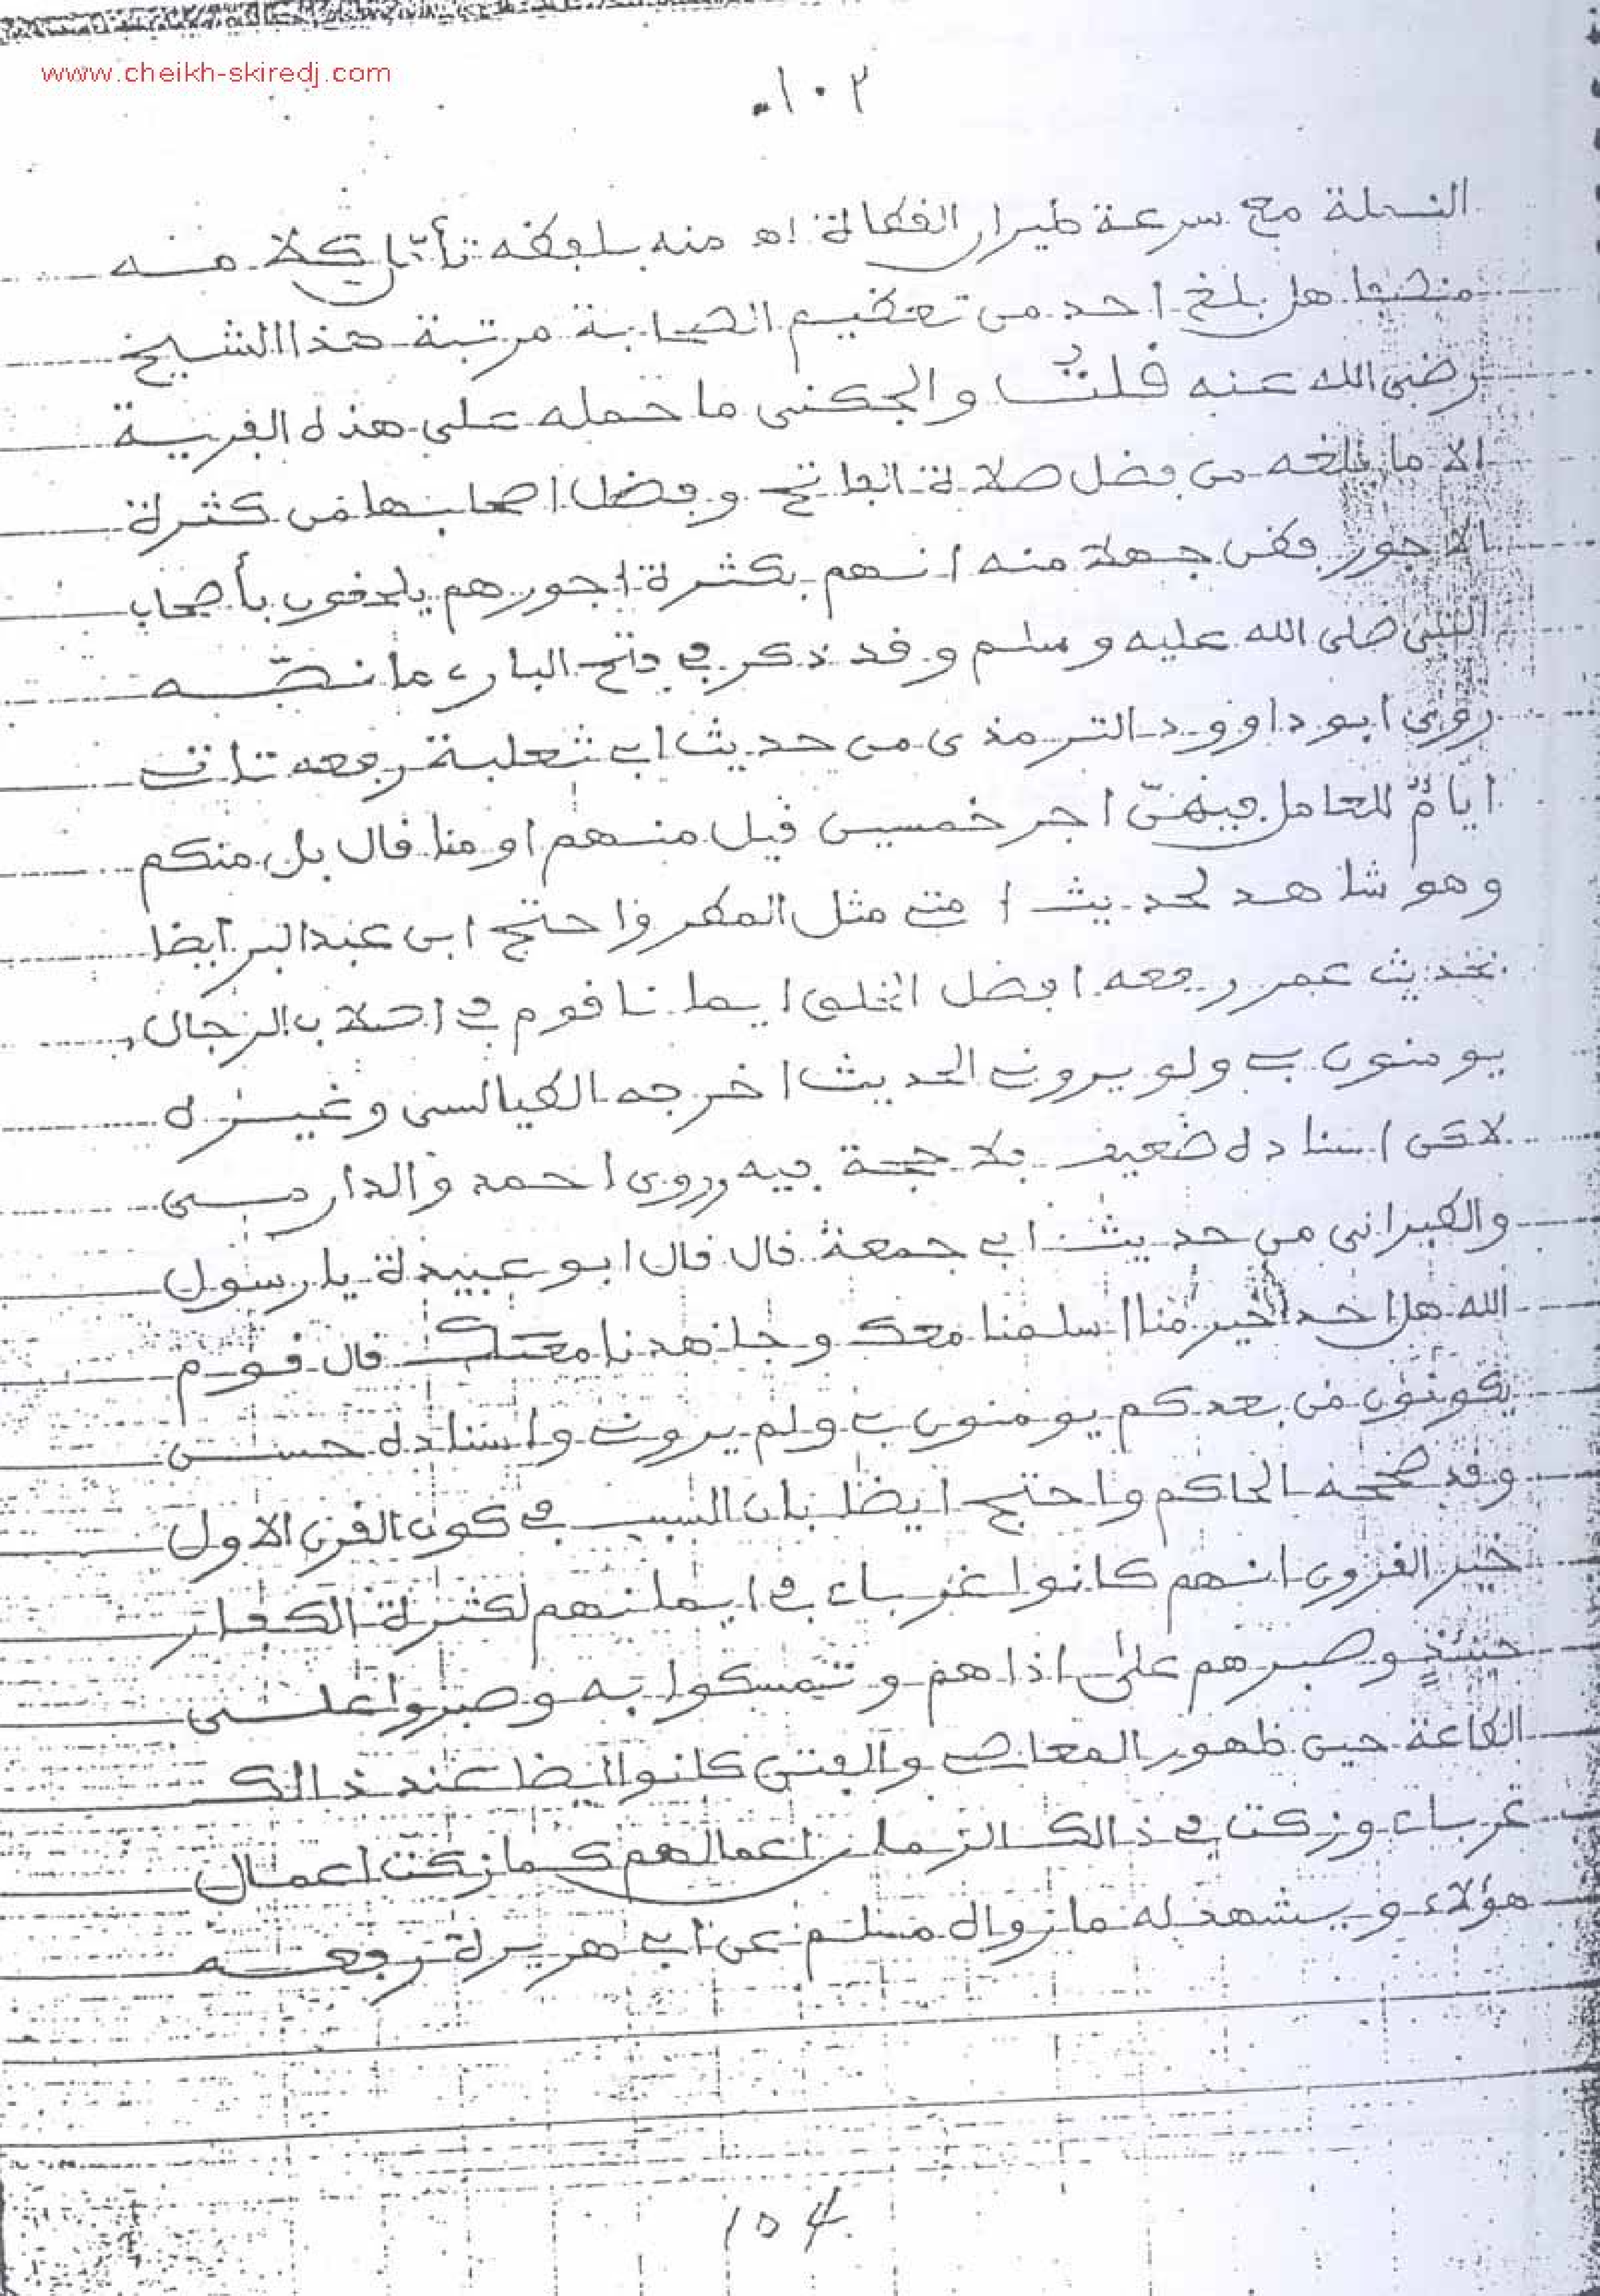 www.cheikh-skiredj.com
١٠٢
النملة مع سرعة طيران القطاة اه منه بلفظه تأمل كلامه
منصفا هل بلغ احد من تعظيم الصحابة مرتبة هذا الشيخ
رضي الله عنه قلت والجكني ما حمله على هذه الفرية
الا ما بلغه من فضل صلاة الفاتح وفضل اصحابها من كثرة
الاجور فظن جهلا منه انهم بكثرة اجورهم يلحقون بأصحاب
النبي صلى الله عليه وسلم وقد ذكر في فتح الباري ما نصه
روى ابو داوود والترمذي من حديث ابي ثعلبة رفعه تات
ايام للعامل فيهن اجر خمسين قيل منهم او منا قال بل منكم
وهو شاهد لحديث امتي مثل المطر واحتج ابن عبد البر ايضا
بحديث عمر رفعه افضل الخلق ايمانا قوم في اصلاب الرجال
يومنون بي ولو يروني الحديث اخرجه الطيالسي وغيره
لاكن اسناده ضعيف فلا حجة فيه وروى احمد والدارمي
والطبراني من حديث ابي جمعة قال قال ابو عبيدة يا رسول
الله هل احد خير منا اسلمنا معك وجاهدنا معك قال قوم
يكونون من بعدكم يومنون بي ولم يروني واسناده حسن
وقد صححه الحاكم واحتج ايضا بان السبب في كون القرن الاول
خير القرون انهم كانوا غرباء في ايمانهم لكثرة الكفار
حينئذ وصبرهم على اذاهم وتمسكوا به وصبروا على
الطاعة حين ظهور المعاصي والفتن كانوا ايضا عند ذالك
غرباء وزكت في ذالك الزمان اعمالهم كما زكت اعمال
هؤلاء ويشهد له ما رواه مسلم عن ابي هريرة رفعه
104